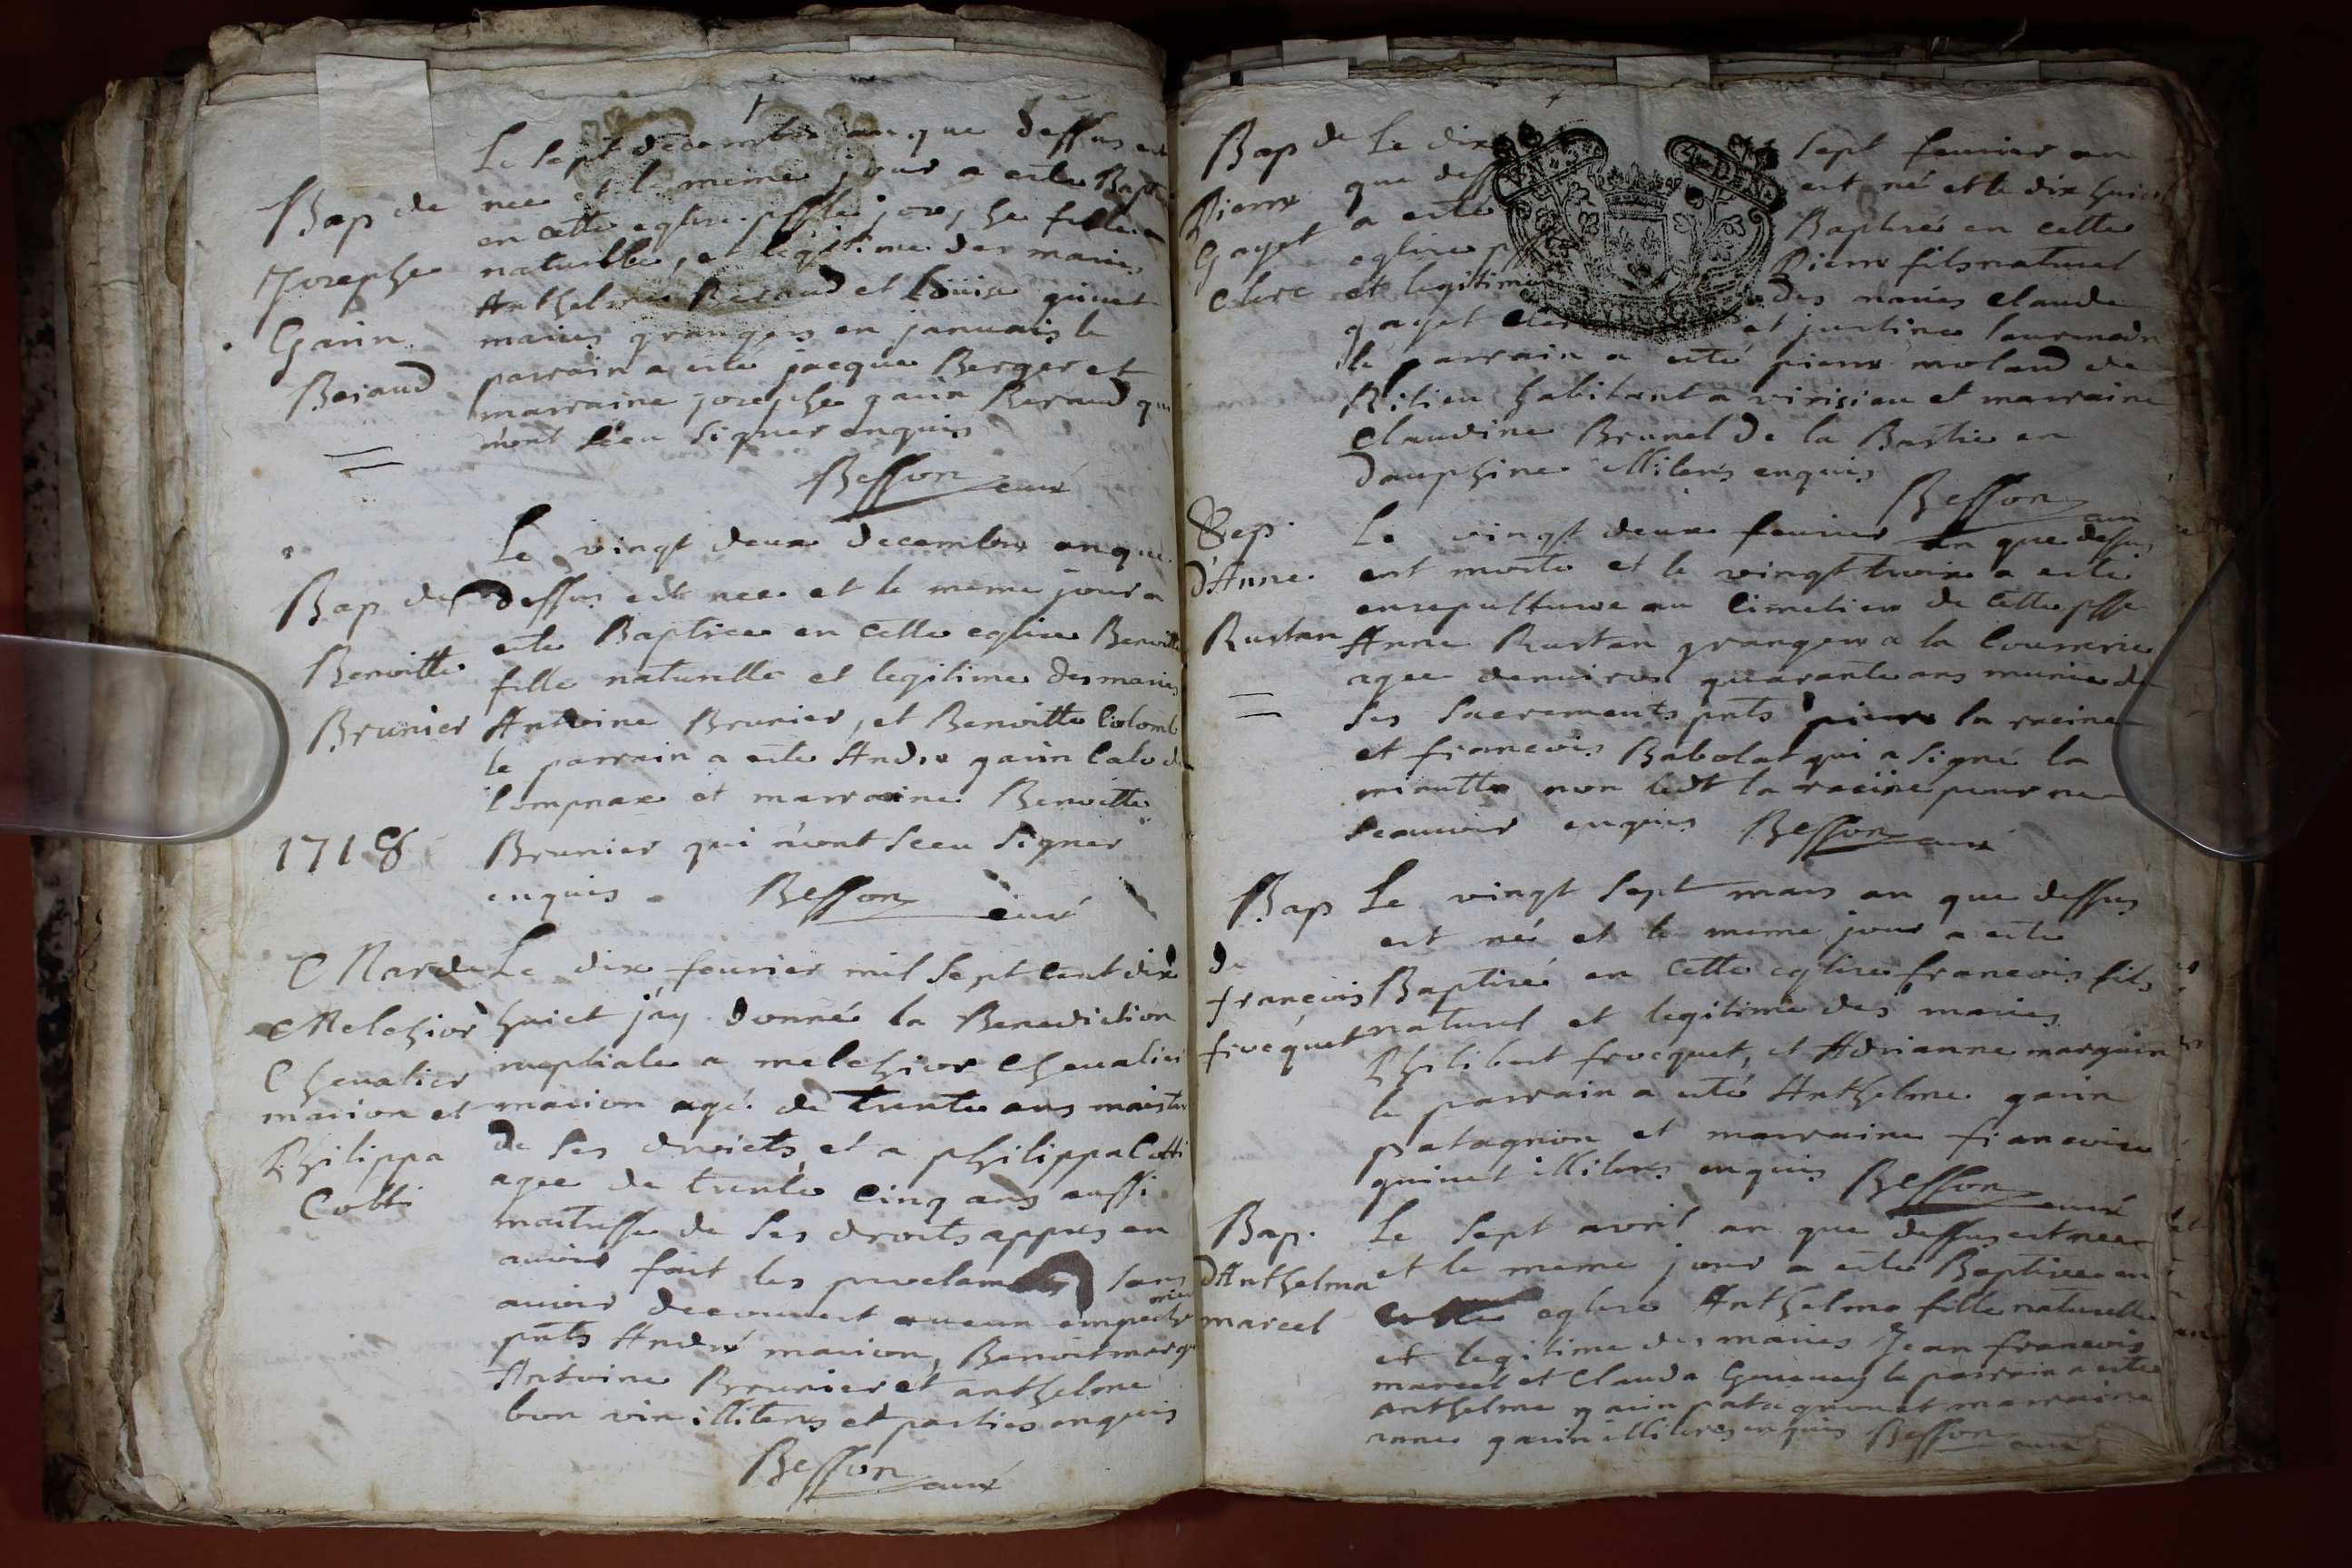 Bap de
Josephe
Garin
Beraud
Le sept decembre an que dessus est
nee et le meme jour a este Baptisee
en cette eglise psse josephe fille
naturelle, et legitime des maries
Anthelme Beraud et Louise guinet
maries grangers en januais le
parrain a este jacque Berger et
marraine josephe garin Beraud qui
n'ont sceu signer enquis
Besson curé
Bap de
Benoitte
Brunier
Le vingt deux decembre an que
dessus est nee et le meme jour a
este Baptisee en cette eglise Benoitte
fille naturelle et legitime des maries
Antoine Brunier, et Benoitte Colomb
le parrain a este Andre garin Calo de
Lompnax et marraine Benoitte
Brunier qui n'ont sceu signer
enquis Besson curé
1718
Mar de
Melchior
Chevalier
marion et
Philippa
Cotti
Le dix feurier mil sept cent dix
huict j'ay donné la Benediction
nuptiale a melchior Chevalier
marion agé de trente ans maistre
de ses droicts et a philippa Cotti
agee de trente cinq ans aussi
maitresse de ses droits appres en
auoir fait les proclam sans
auoir decouuert aucun empeche
ment
pnts André marion, Benoit marg
Antoine Brunier et anthelme
bon vin illiteres et parties enquis
Besson curé
Bap de
Pierre
Gaget
Clerc
Le dix sept feurier an
que dess est né et le dix huict
a esté Baptisé en cette
eglise ps Pierre fils naturel
et legitime des maries Claude
gaget Cler et justine
le parrain a esté pierre molard de
Ritieu habitant a virisieu et marraine
Claudine Brunel de la Bastie en
Dauphine illiteres enquis
Besson curé
Sep.
d'Anne
Rustan
Le vingt deux feurier an que dessus
est morte et le vingt trois a este
ensepulturee au Cimetiere de cette psse
Anne Rustan grangere a la Courrerie
agee denuiron quarante ans munie de
ses sacrements pnts pierre la racine
et francois Babolat qui a signé la
minutte non ledt la racine pour ne
scauoir enquis Besson curé
Bap
de
francois
frocquet
Le vingt sept mars an que dessus
est né et le meme jour a este
Baptisé en cette eglise francois fils
naturel et legitime des maries
Philibert frocquet, et Adrianne marguin
le parrain a esté Anthelme garin
patagnon et marraine francoise
guinet illiteres enquis Besson curé
Bap.
d'Anthelma
marcel
Le sept avril an que dessus est nee
et le meme jour a este Baptisee en
cette eglise Anthelma fille naturelle
et legitime des maries Jean francois
marcel et Clauda le parrain a este
anthelme garin patagnon et marraine
anne garin illiteres enquis Besson curé